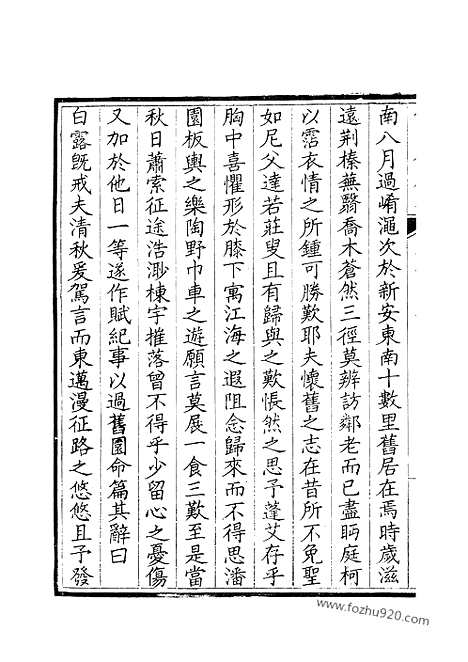 南八月過崤澠次於新安東南十數里舊居在焉時歲滋
遠荆榛蕪翳喬木蒼然三徑莫辨訪鄰老而已盡眄庭柯
以霑衣情之所鍾可勝歎耶夫懷舊之志在昔所不免聖
如尼父達若莊叟且有歸與之歎悵然之思予蓬艾存乎
胸中喜懼形於膝下寓江海之遐阻念歸來而不得思潘
園板輿之樂陶野巾車之遊願言莫展一食三歎至是當
秋日蕭索征途浩渺棟宇摧落曾不得乎少留心之憂傷
又加於他日一等遂作賦紀事以過舊園命篇其辭曰
白露旣戒夫清秋爰駕言而東邁漫征路之悠悠且予發
www.fozhu920.com